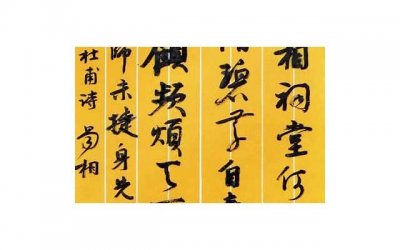 相祠堂何
碧草自春
顧頻煩天
師未捷身先
杜甫诗 蜀相